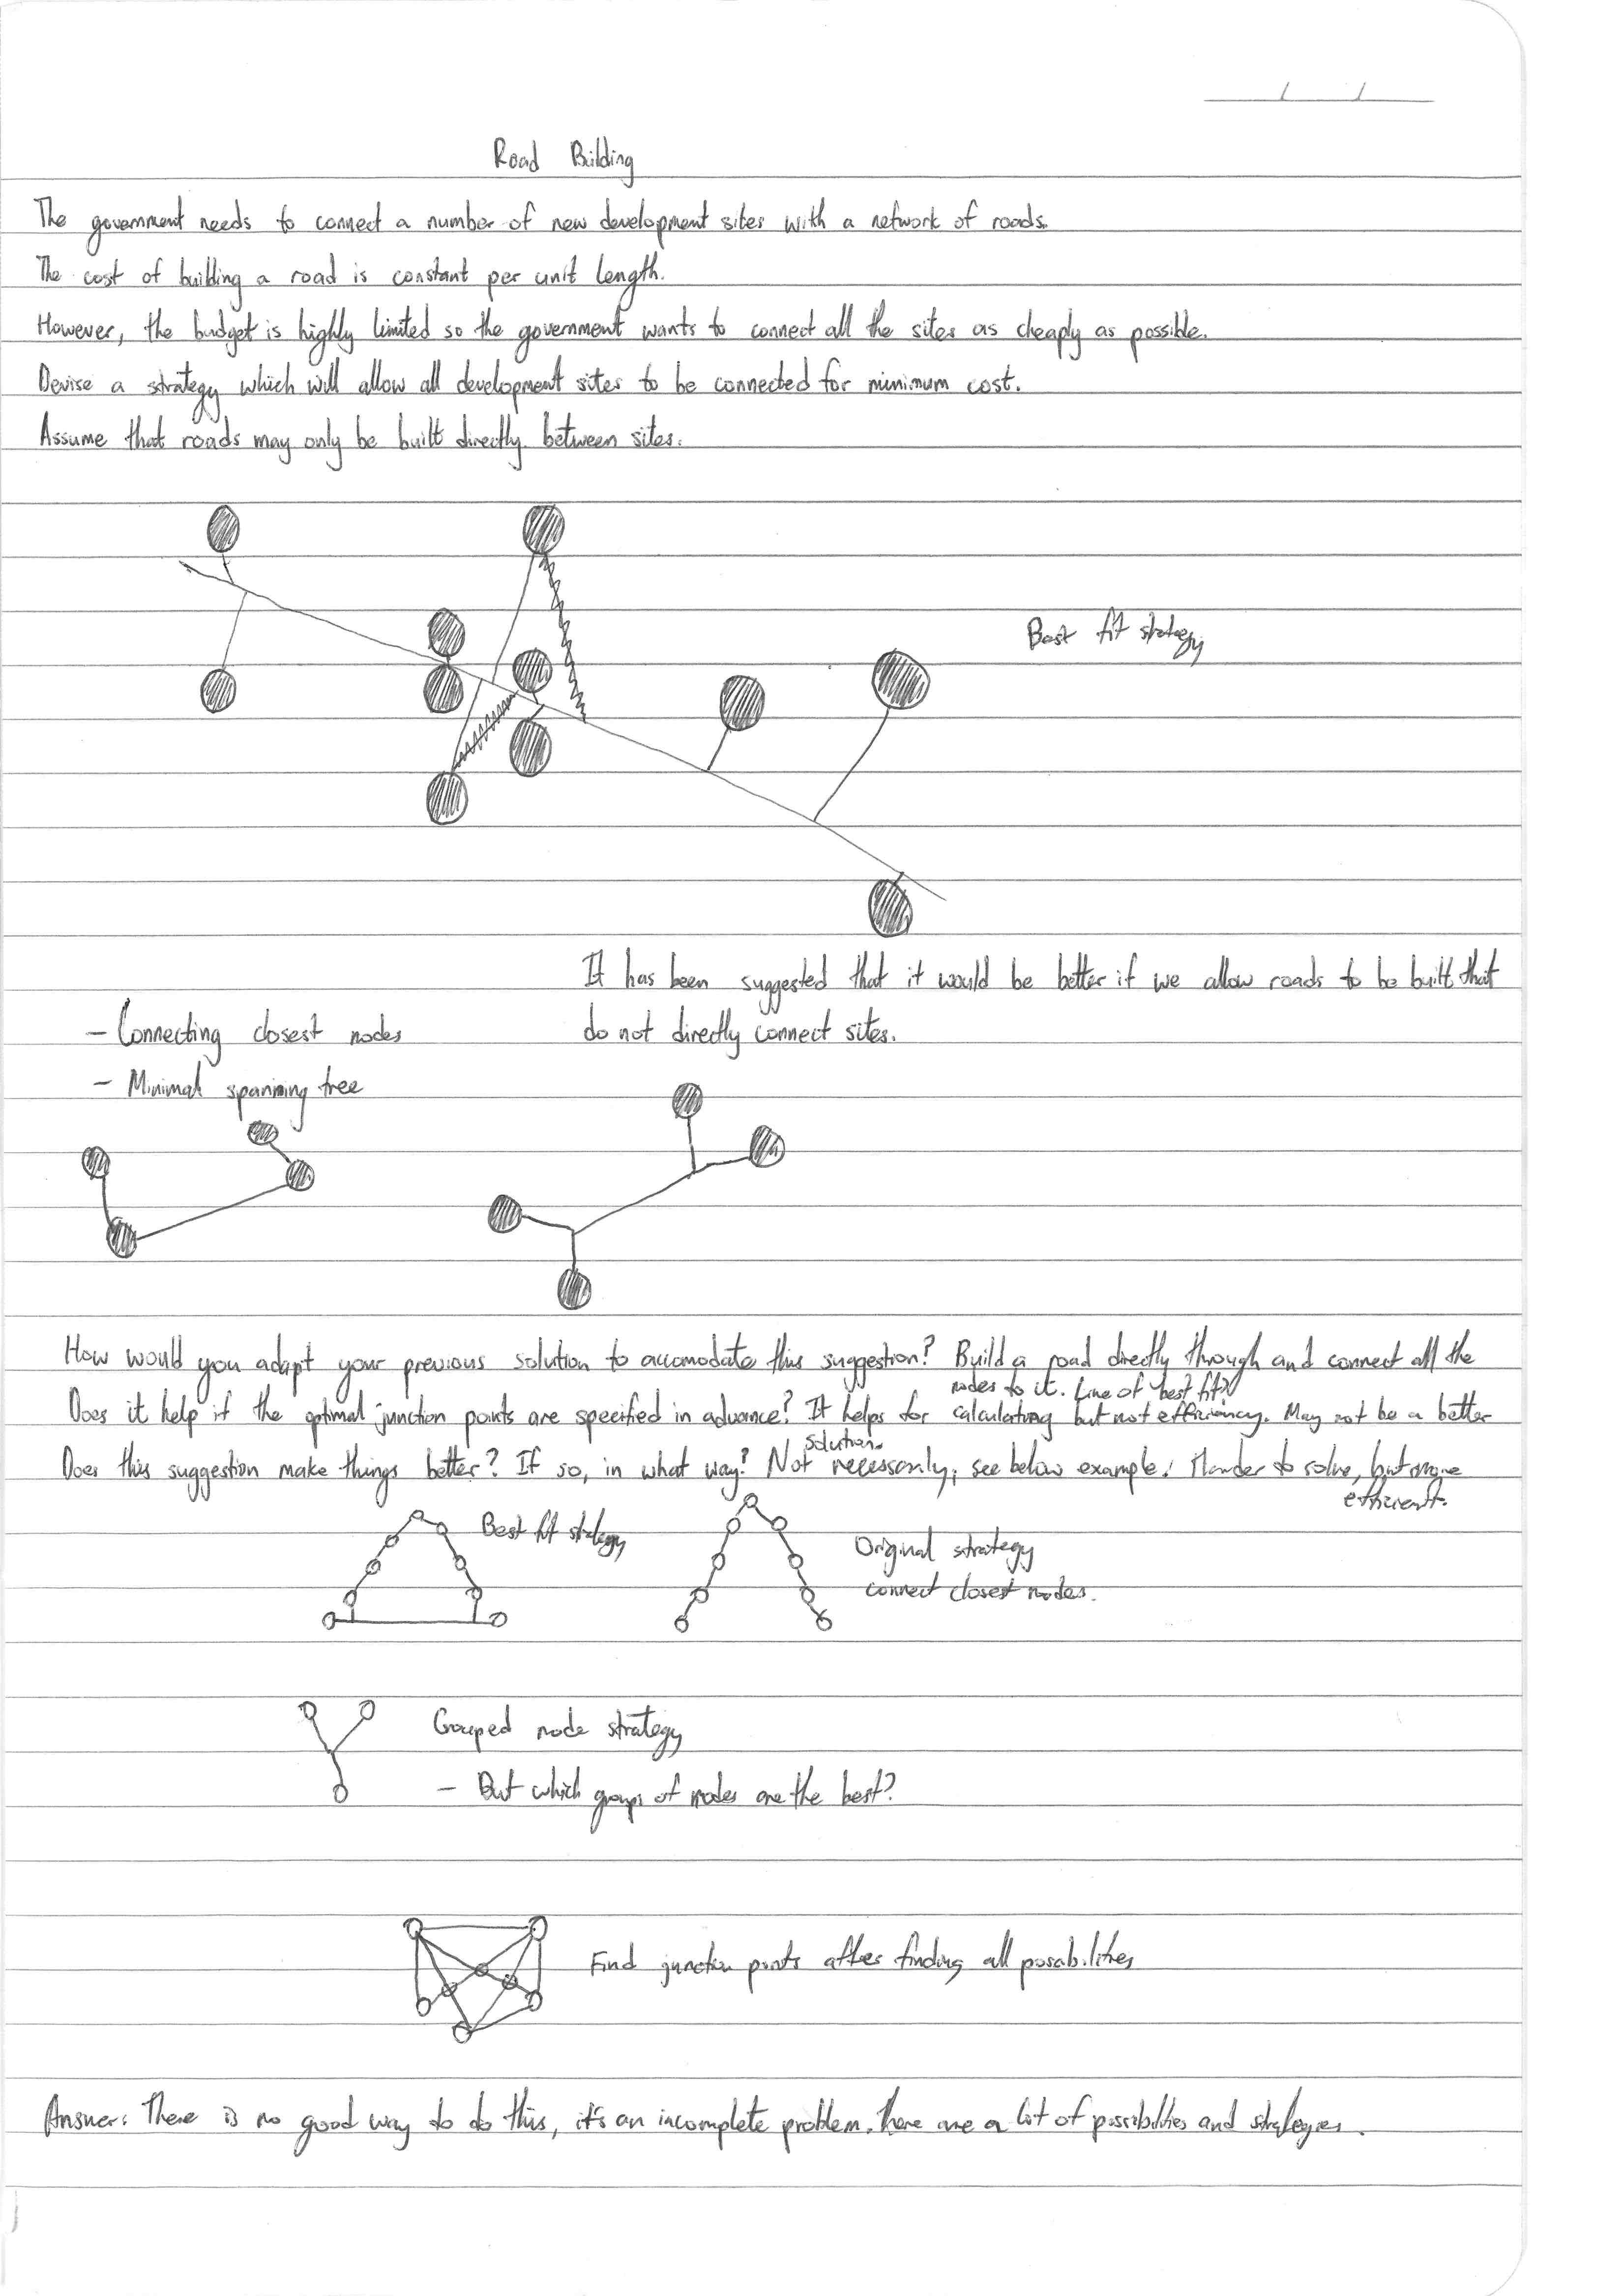 Road Building
The government needs to connect a number of new development sites with a network of roads.
The cost of building a road is constant per unit length.
However, the budget is highly limited so the government wants to connect all the sites as cheaply as possible.
Devise a strategy which will allow all development sites to be connected for minimum cost.
Assume that roads may only be built directly between sites.
Best fit strategy
It has been suggested that it would be better if we allow roads to be built that
do not directly connect sites.
- Connecting closest nodes
- Minimal spanning tree
How would you adapt your previous solution to accomodate this suggestion? Build a road directly through and connect all the
nodes to it. Line of best fit?
Does it help if the optimal junction points are specified in advance? It helps for calculating but not efficiency. May not be a better
solution.
Does this suggestion make things better? If so, in what way? Not necessarily, see below example. Harder to solve, but more
efficient.
Best fit strategy
Original strategy
connect closest nodes.
Grouped node strategy
- But which groups of nodes are the best?
Find junction points after finding all posabilities
Answer: There is no good way to do this, it's an incomplete problem. There are a lot of possibilities and strategies.